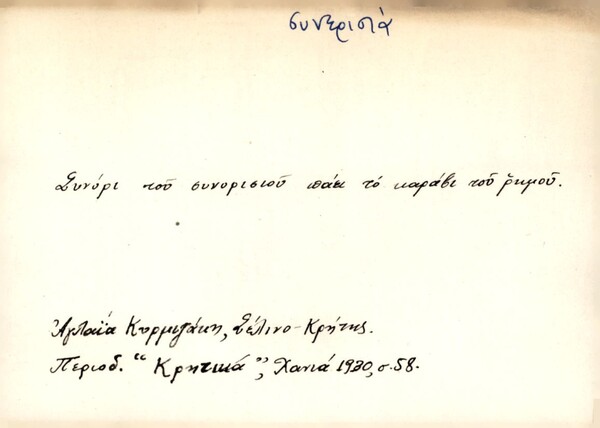 συνερισιά
Συνόρι τοῦ συνορισιοῦ πάει τό καράβι τοῦ ρημοῦ.
Ἀγλαΐα Κυρμιζάκη, Σέλινο-Κρήτης.
Περιοδ. "Κρητικά", Χανιά 1930, σ. 58.